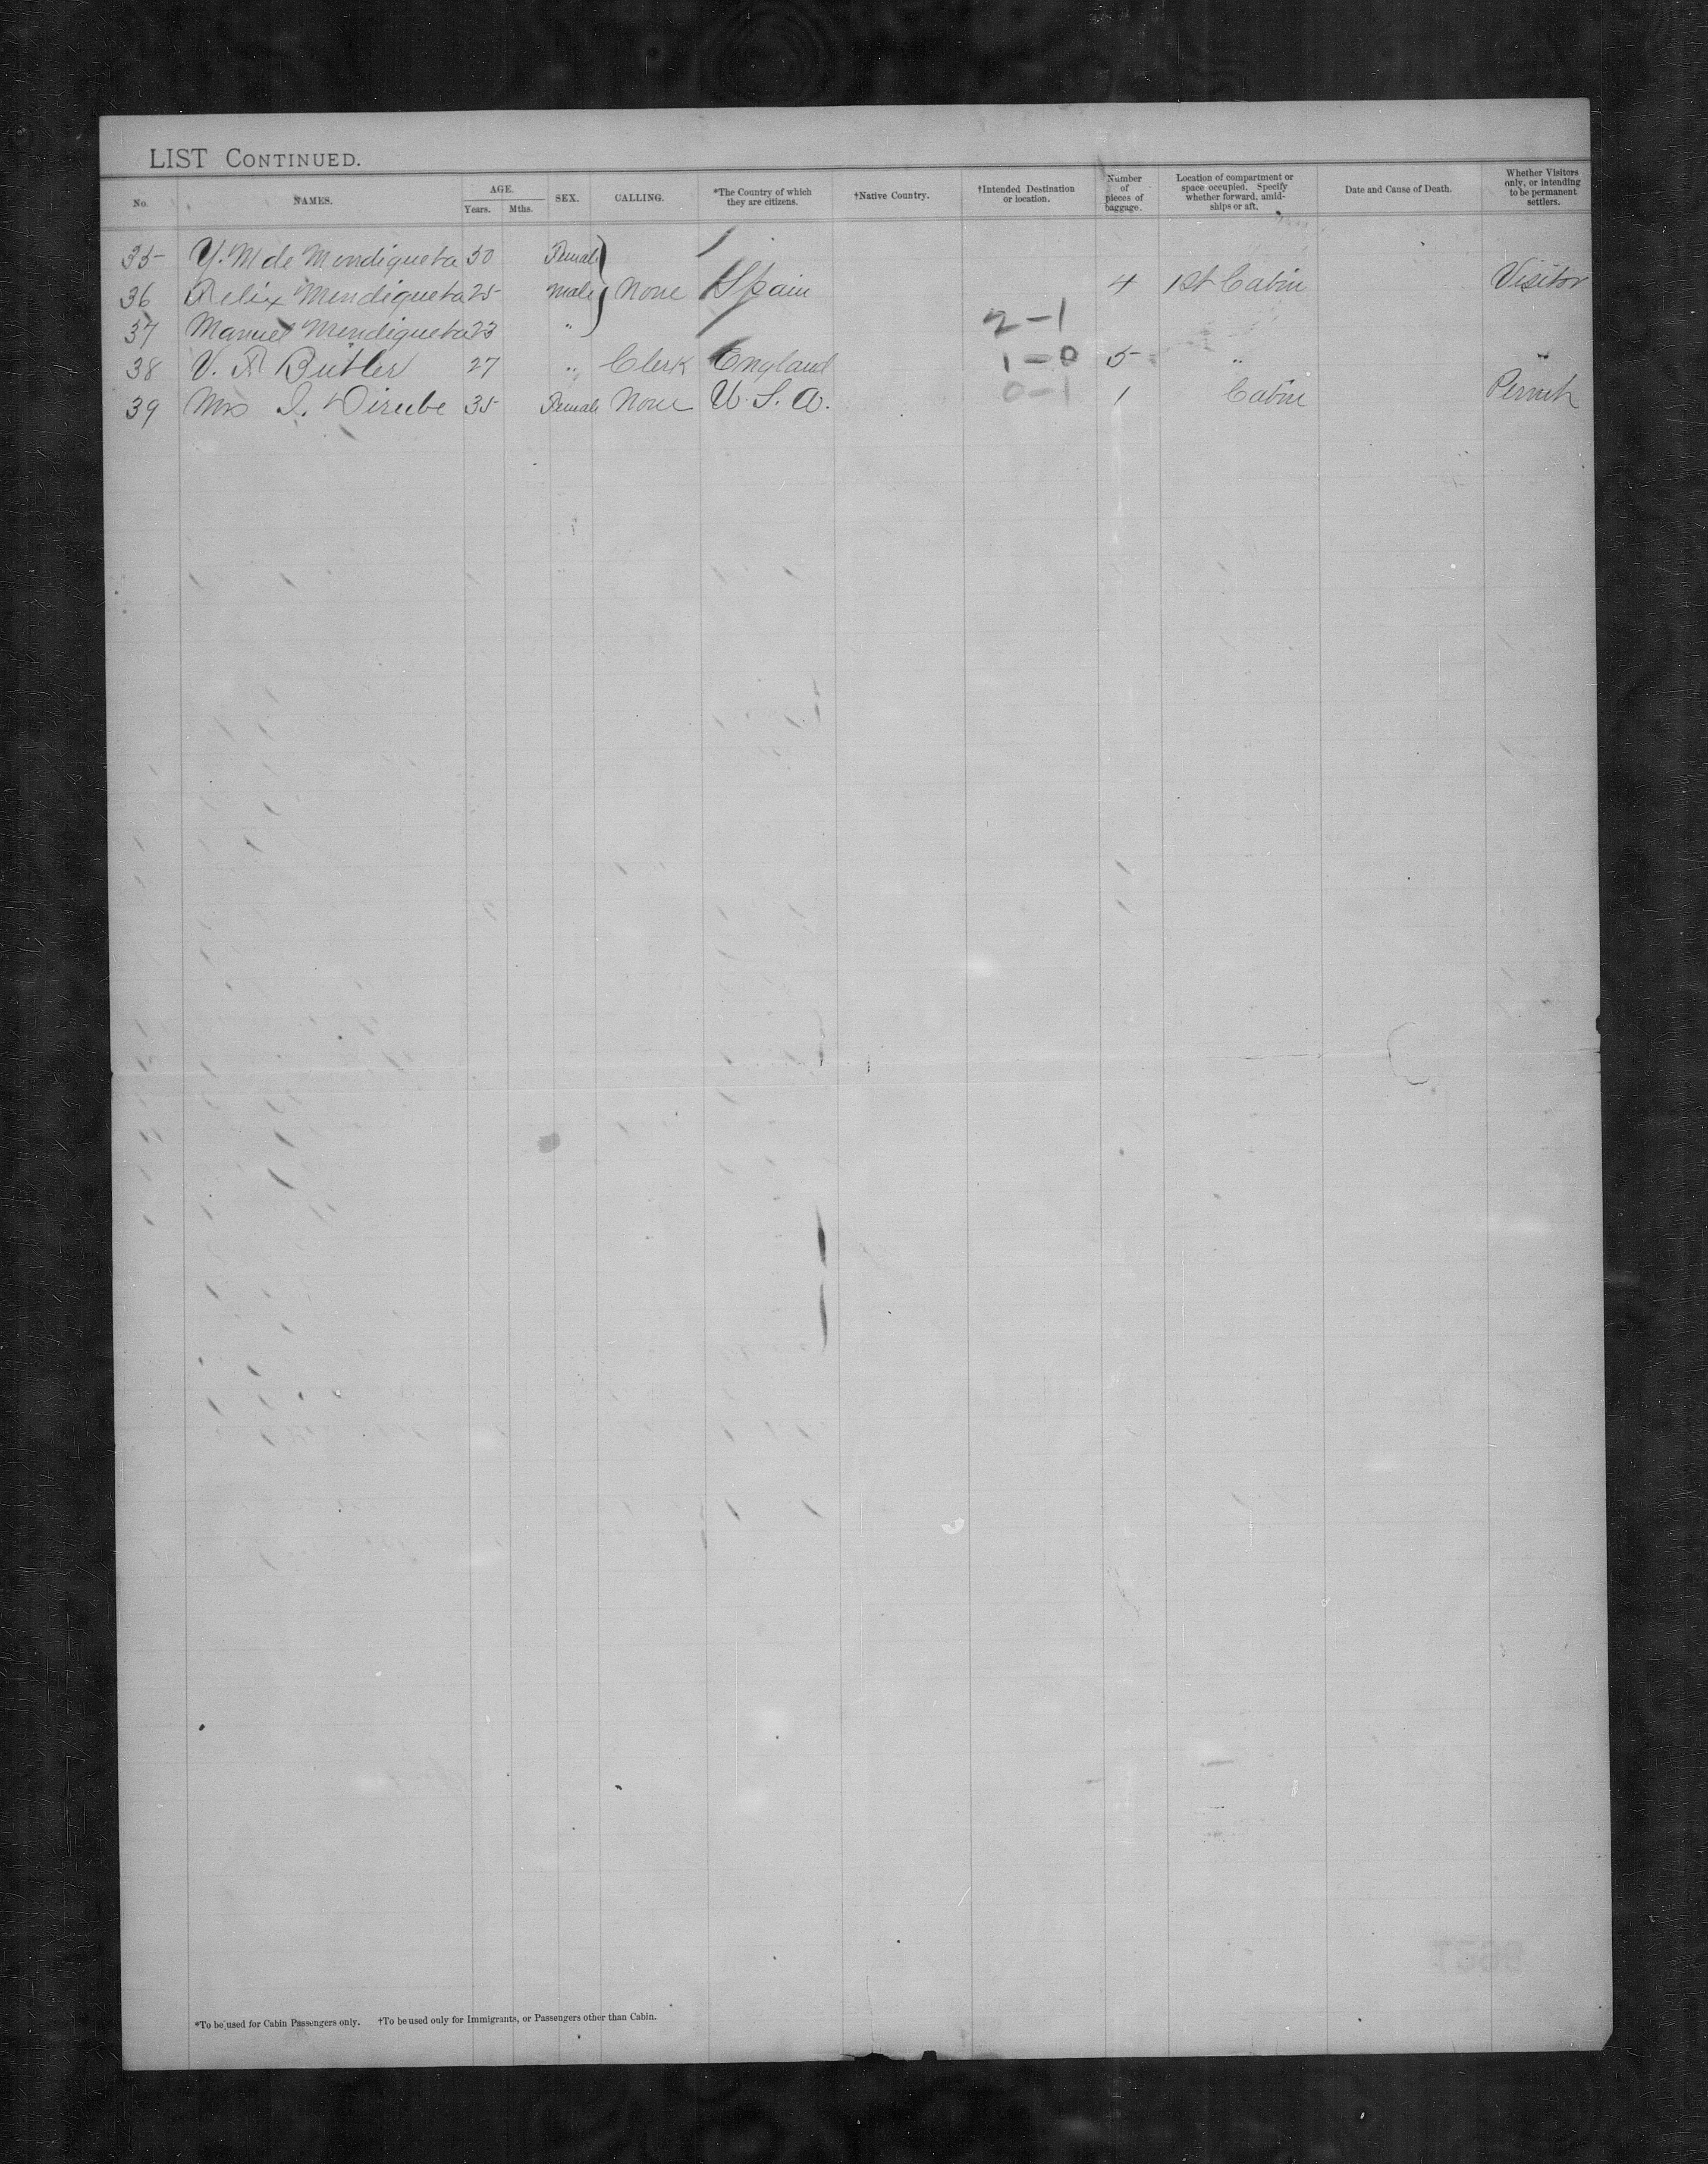 LIST CONTINUED.
No. NAMES. AGE. Years. Mths. SEX. CALLING. *The Country of which they are citizens. †Native Country. †Intended Destination or location. Number of pieces of baggage. Location of compartment or space occupied. Specify whether forward, amidships or aft. Date and Cause of Death. Whether Visitors only, or intending to be permanent settlers.
35 Y. M de Mendiqueta 50 Female
36 Felix Mendiqueta 25 Male None Spain 4 1st Cabin Visitor
37 Manuel Mendiqueta 23 " 2-1
38 V. F. Butler 27 " Clerk England 1-0 5 " "
39 Mrs I. Dirube 35 Female None U.S.A. 0-1 1 Cabin
*To be used for Cabin Passengers only. †To be used only for Immigrants, or Passengers other than Cabin.